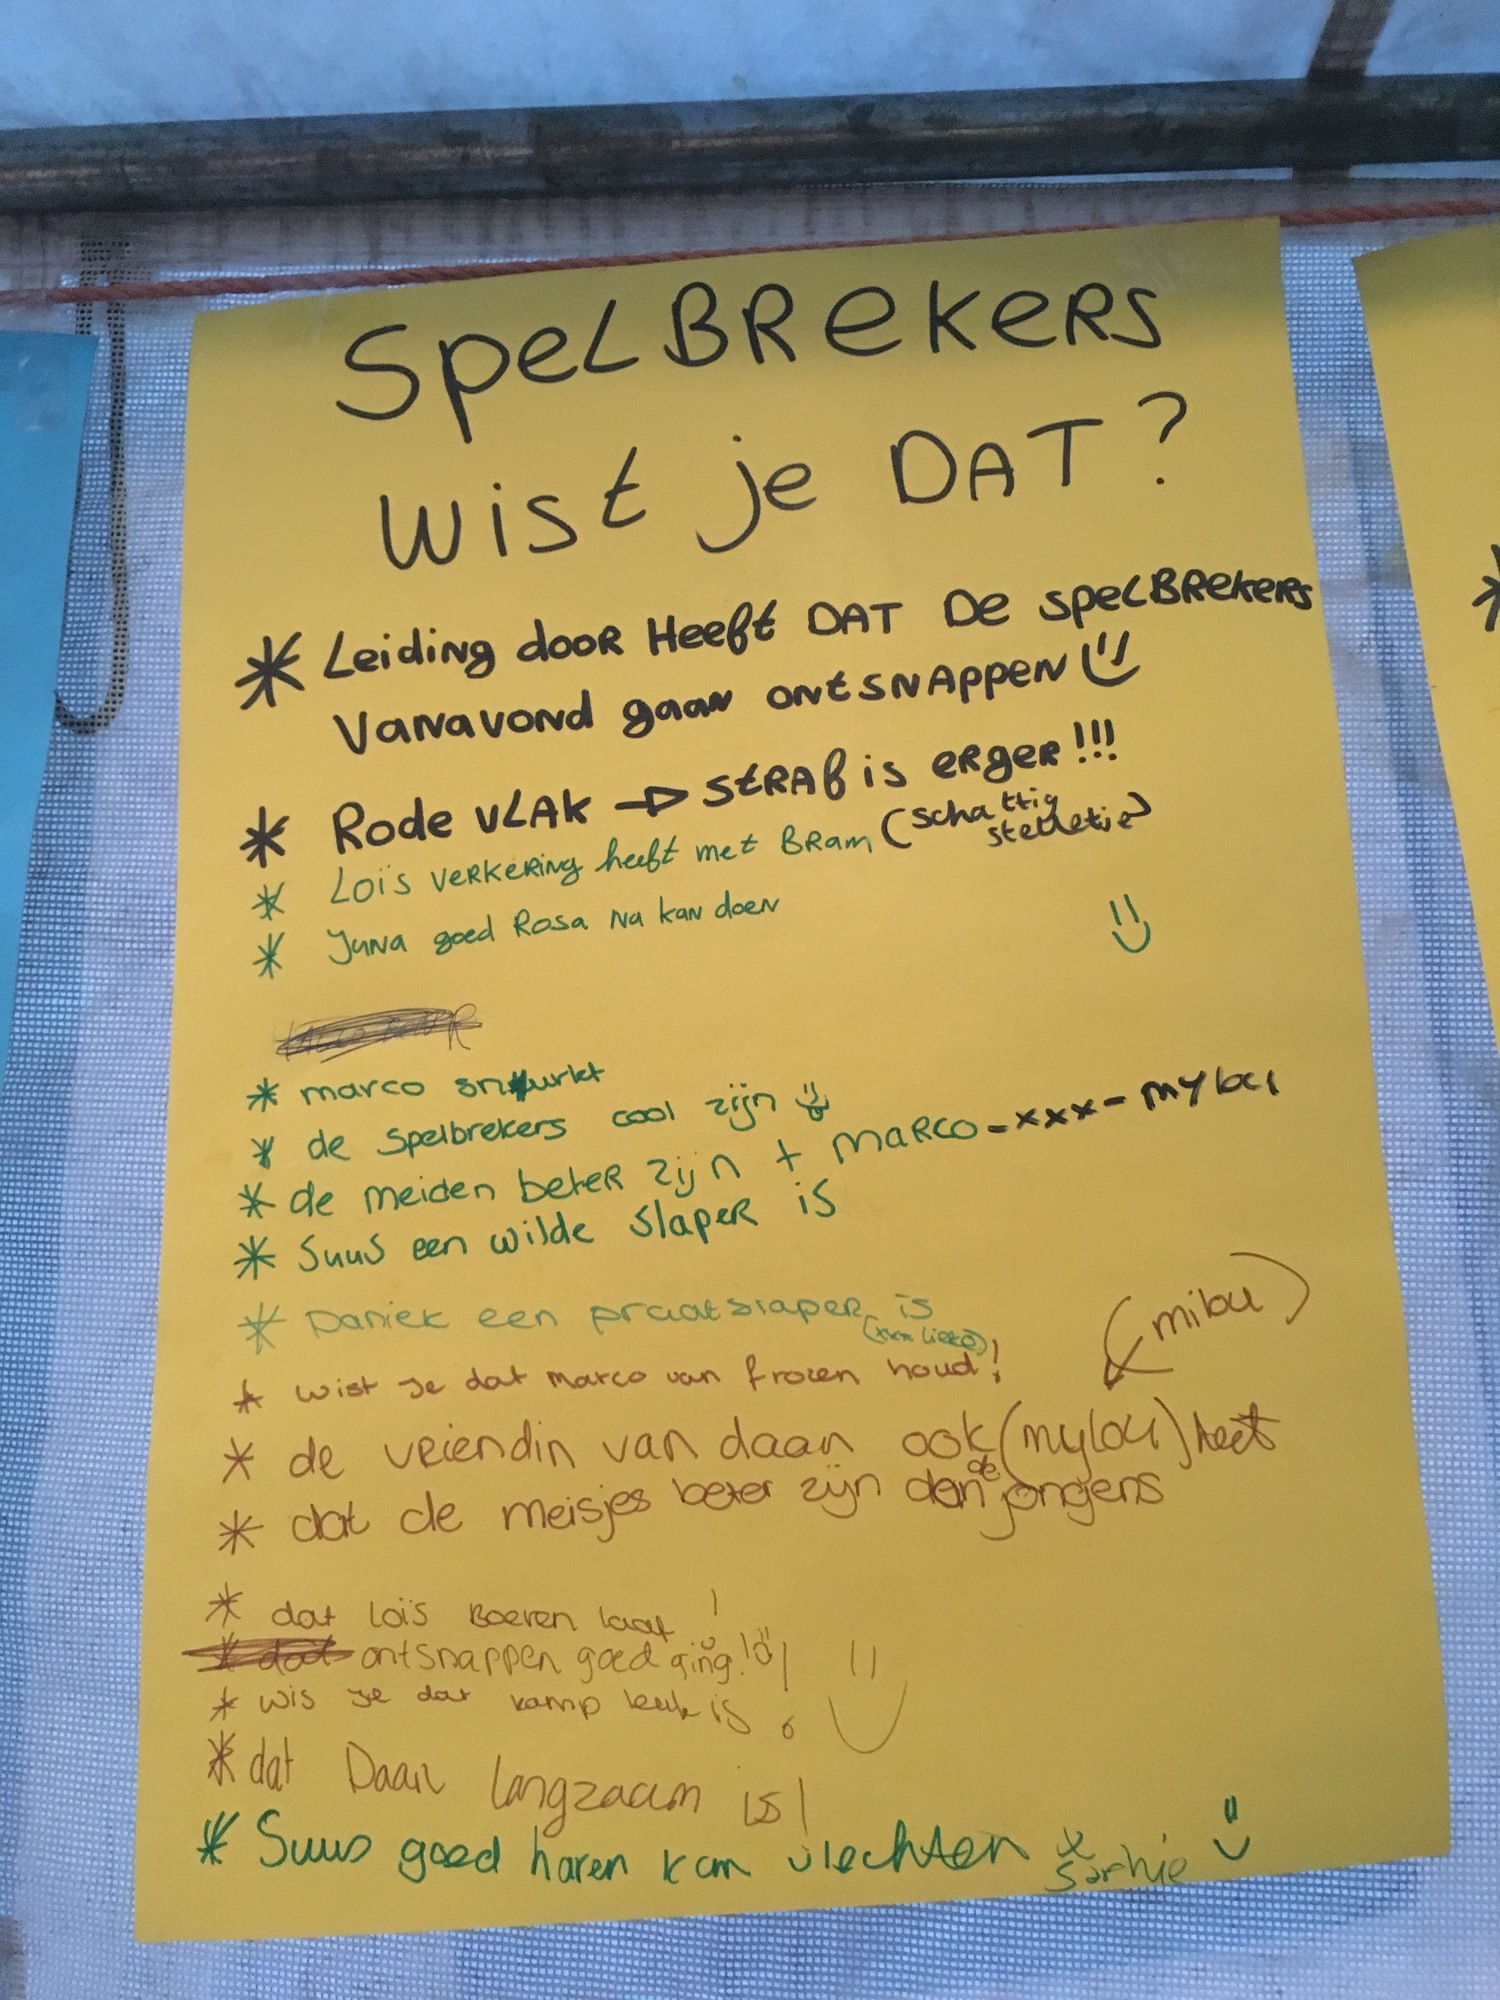 SpeLBRekeRS
Wist je DAT?
* Leiding dooR Heeft DAT De SpeLBRekeRS
VaNavoNd gaaN oNtSNAppeN
* Rode vLAK → StRAf is eRgeR!!!
* Loïs veRkeRiNg heeft met BRam (schattig
stelletje)
* JuNa goed Rosa Na kan doeN
* marco snurkt
* de spelbrekers cool zijn
* de meiden beter zijn + MARCO -xxx- mylou
* Suus een wilde slaper is
* Daniek een praatslaper is
(xxx Lieke)
(milou)
* wist je dat marco van frozen houd!
* de vriendin van daan ook (mylou) heet
* dat de meisjes beter zijn dan de jongens
* dat Loïs Boeren laat !
* dat ontsnappen goed ging!
* wis je dat kamp leuk is !
* dat Daan langzaam is!
* Suus goed haren kan vlechten x
Sophie